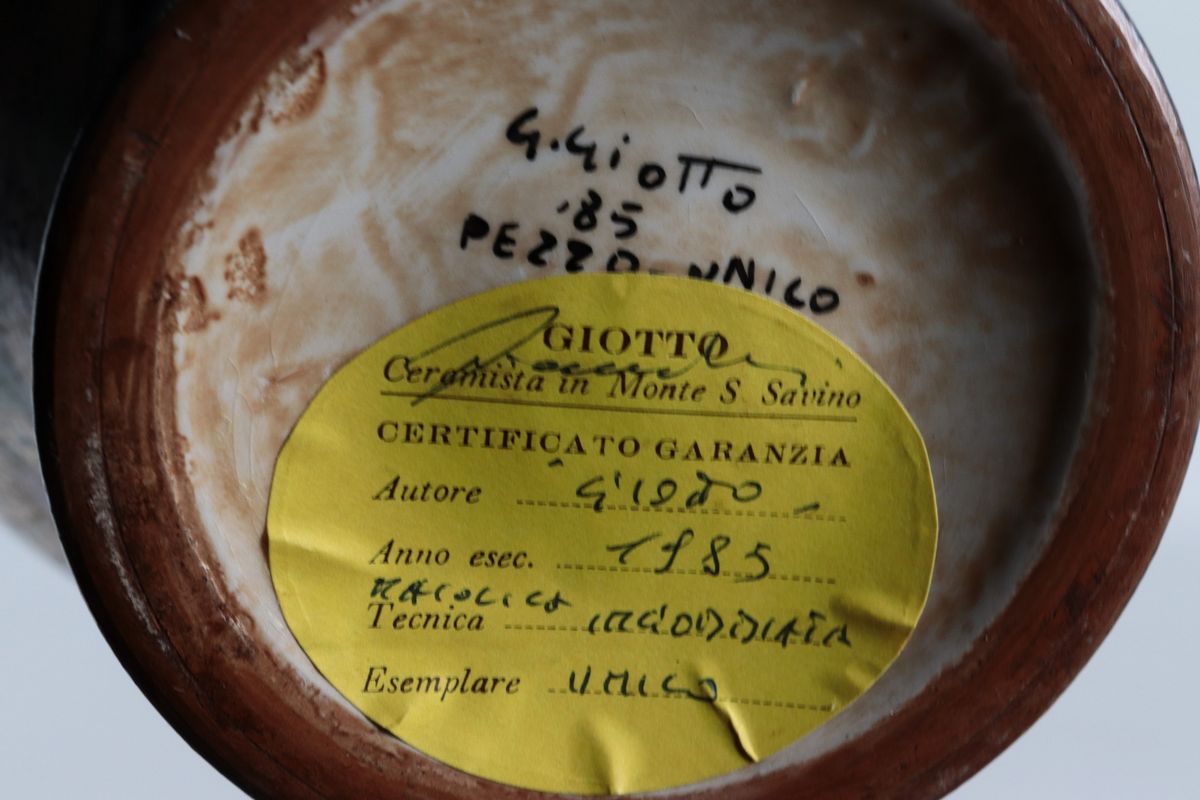 G. GiOTTO
'85
PEZZO UNICO
GIOTTO
Ceramista in Monte S. Savino
CERTIFICATO GARANZIA
Autore Giotto
Anno esec. 1985
Tecnica
Esemplare UNICO